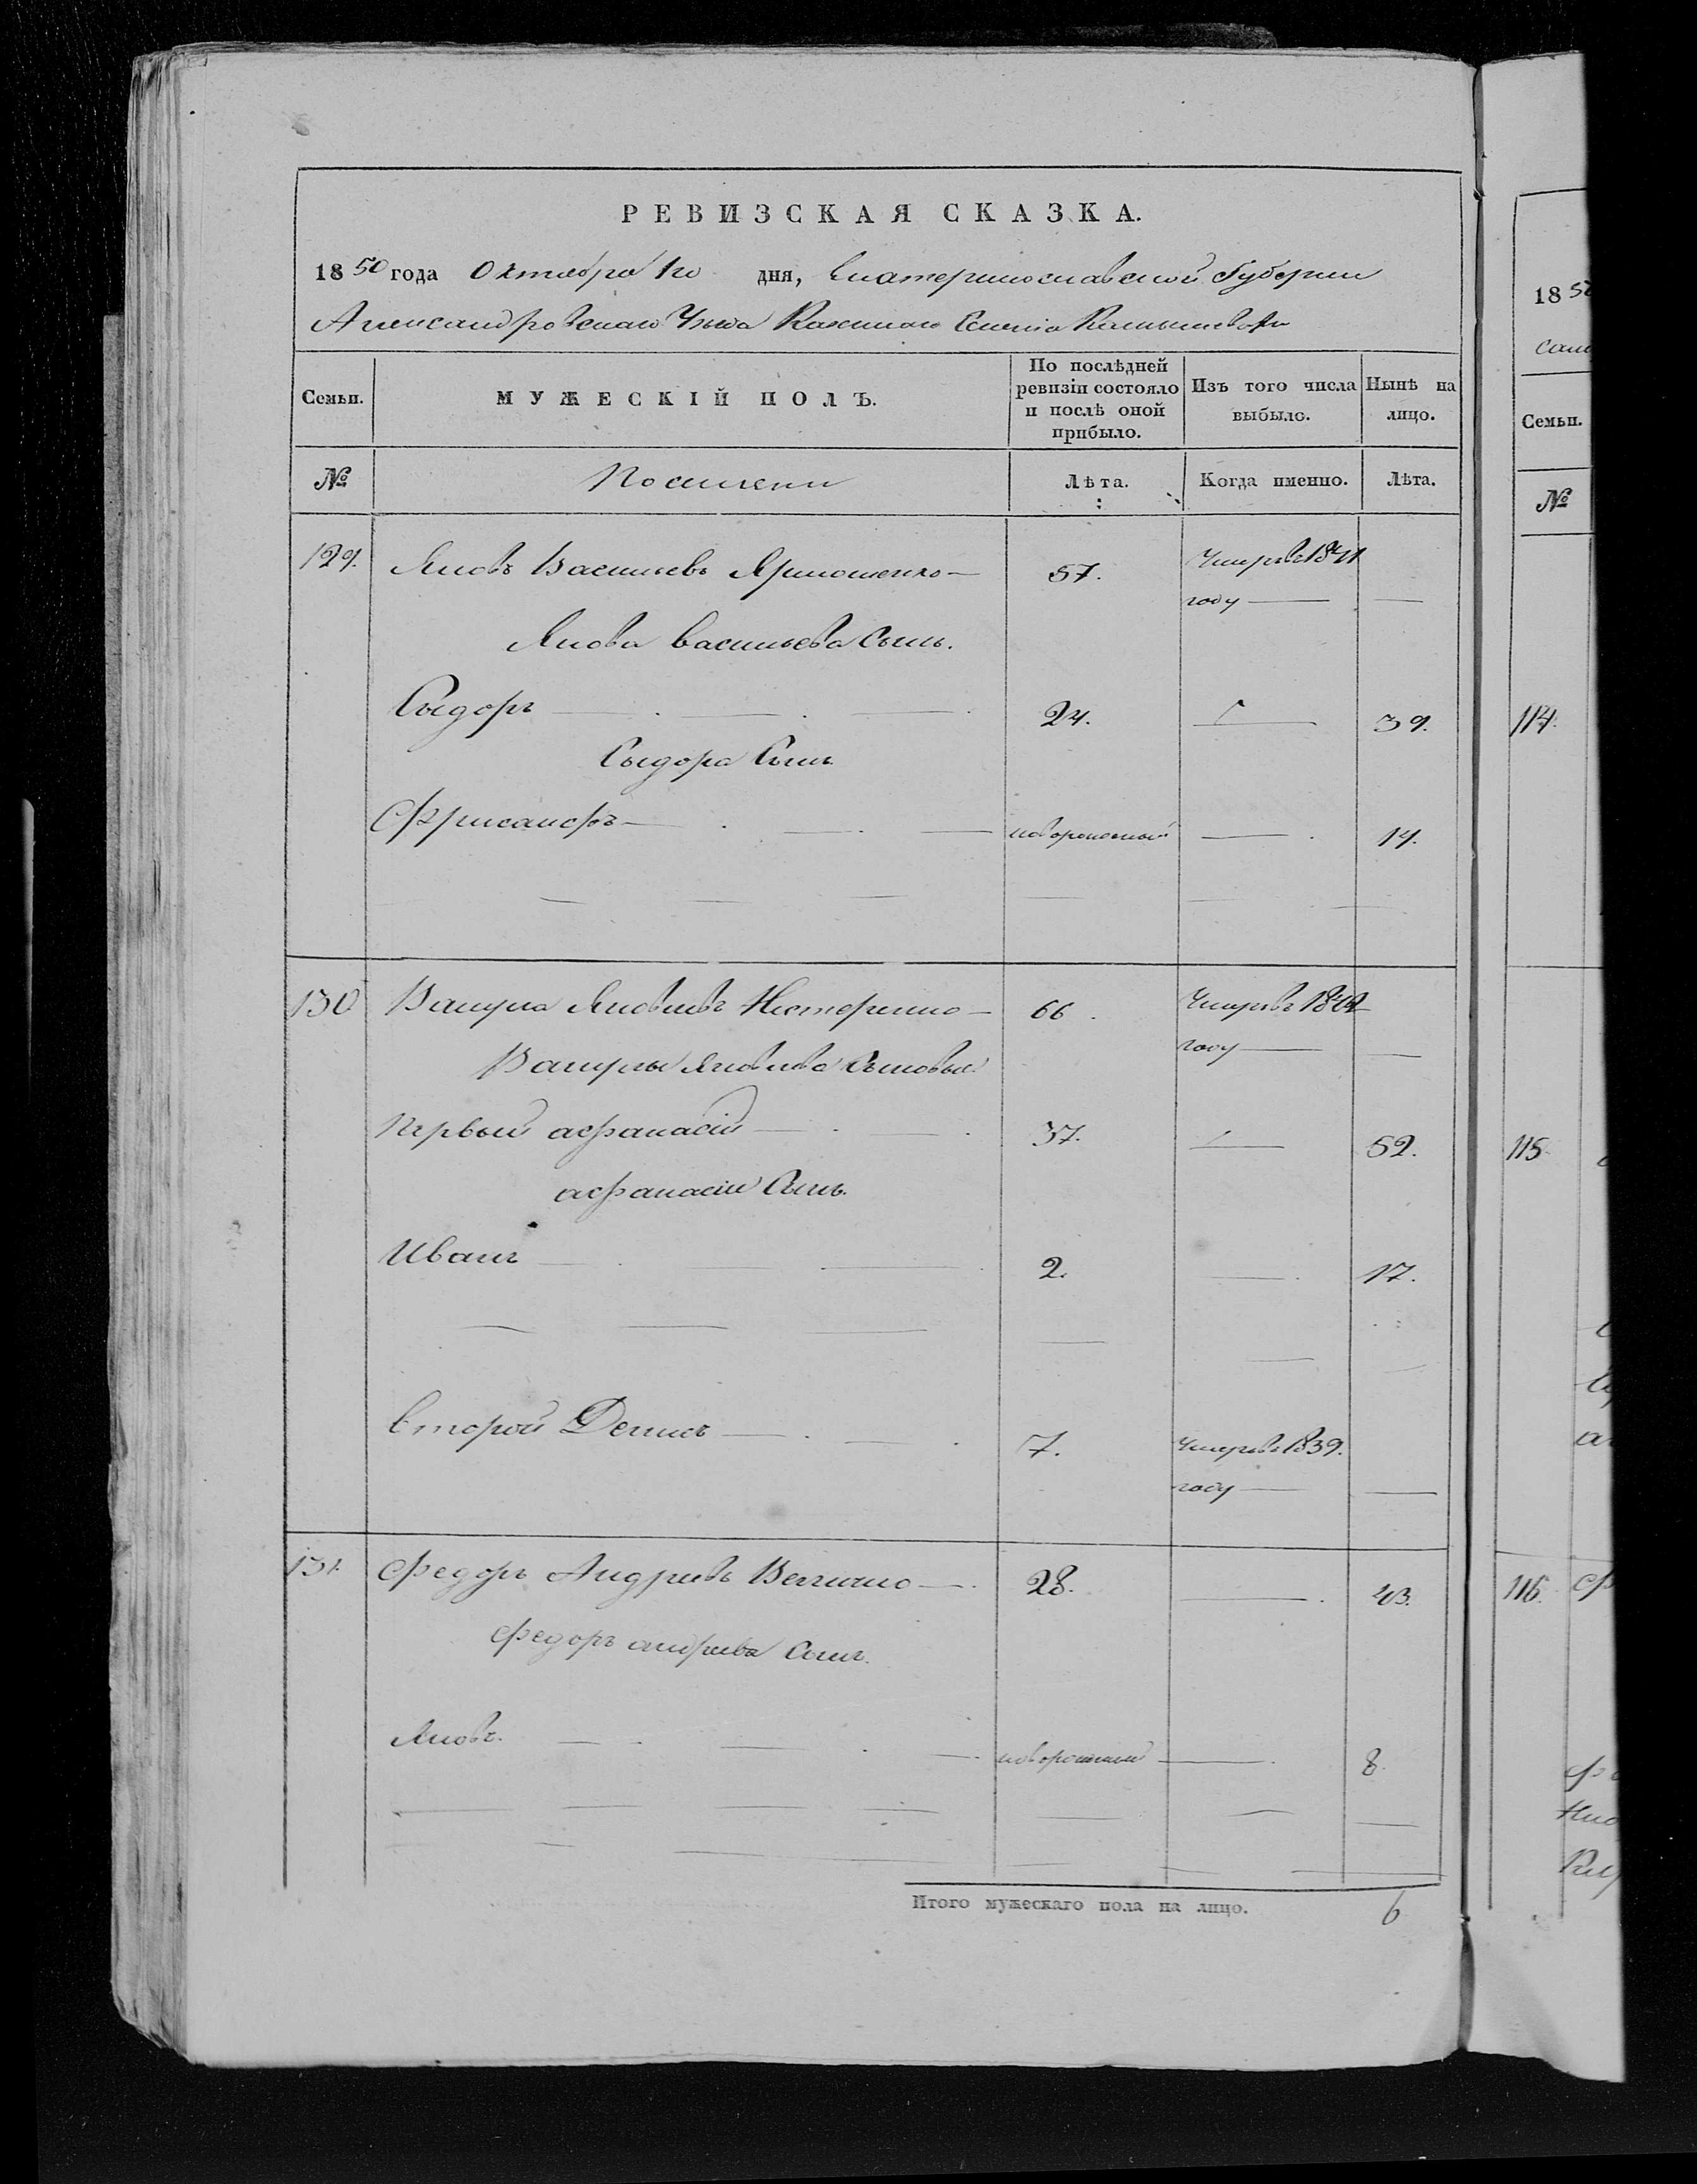 РЕВИЗСКАЯ СКАЗКА.
1850 года Октября 1го дня, Екатеринославской Губернии
Александровскаго Уезда Казеннаго Селенія
Семьи. МУЖЕСКІЙ ПОЛЪ. По послѣдней ревизіи состояло и послѣ оной прибыло. Изъ того числа выбыло. Нынѣ на лицо.
№ Поселяни Лѣта. Когда именно. Лѣта.
129. Яковъ Васильевъ Ярмошенко 57. Умеръ въ 1841
году
Якова Васильева Сынъ.
Сыдоръ 24. 39.
Сыдора Сынъ
Хрисанфъ новорожденный 14.
130 Вакула Яковлевъ Нестеренко 66. Умеръ въ 1842
году
Вакулы Яковлева Сыновья
Первый афанасій 37. 52.
афанасія Сынъ.
Иванъ 2. 17.
Второй Денисъ 7. Умеръ въ 1839.
году
131. Федоръ Андреевъ Величко 28. 43.
федоръ андреева Сынъ.
Яковъ. новорожденый 8.
Итого мужескаго пола на лицо. 6
1850
Семьи.
№
114.
115.
116.